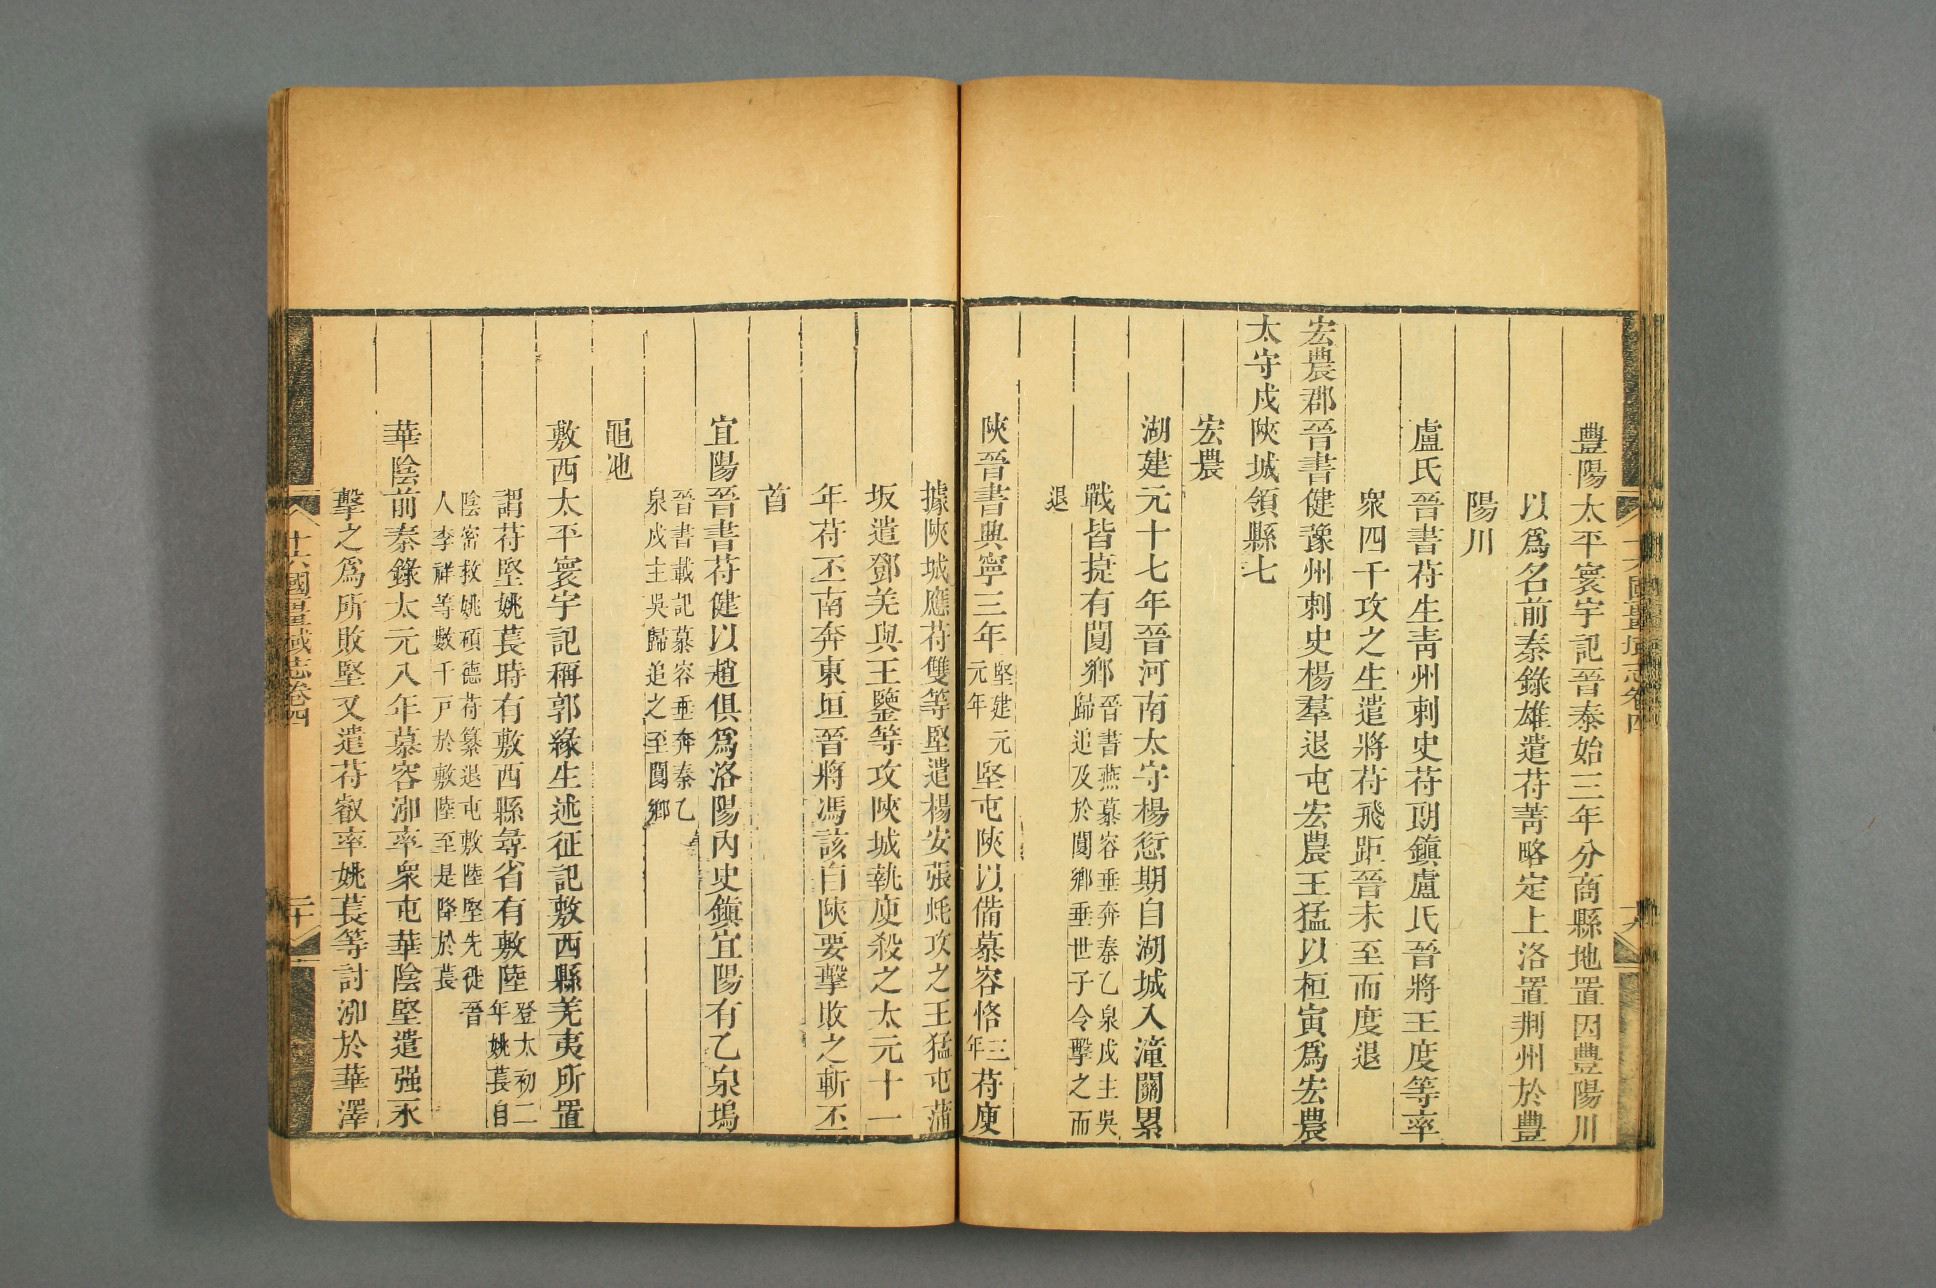 豐陽太平寰宇記晉泰始三年分商縣地置因豐陽川
以爲名前秦錄雄遣苻菁略定上洛置荆州於豐
陽川
盧氏晉書苻生靑州刺史苻朗鎭盧氏晉將王度等率
衆四千攻之生遣將苻飛距晉未至而度退
宏農郡晉書健豫州刺史楊羣退屯宏農王猛以桓寅爲宏農
太守戍陝城領縣七
宏農
湖建元十七年晉河南太守楊愆期自湖城入潼關累
戰皆捷有閿鄕晉書燕慕容垂奔秦乙泉戍主吳
歸追及於閿鄕垂世子令擊之而
退
陝晉書興寧三年堅建元
元年堅屯陝以備慕容恪三
年苻庾
據陝城應苻雙等堅遣楊安張蚝攻之王猛屯蒲
坂遣鄧羌與王鑒等攻陝城執庾殺之太元十一
年苻丕南奔東垣晉將馮該自陝要擊敗之斬丕
首
宜陽晉書苻健以趙俱爲洛陽內史鎭宜陽有乙泉塢
晉書載記慕容垂奔秦乙
泉戍主吳歸追之至閿鄕
黽池
敷西太平寰宇記稱郭緣生述征記敷西縣羌夷所置
謂苻堅姚萇時有敷西縣尋省有敷陸登太初二
年姚萇自
陰密救姚碩德苻纂退屯敷陸堅先徙晉
人李祥等數千戸於敷陸至是降於萇
華陰前秦錄太元八年慕容泖率衆屯華陰堅遣强永
擊之爲所敗堅又遣苻叡率姚萇等討泖於華澤
十六國疆域志卷四
二十